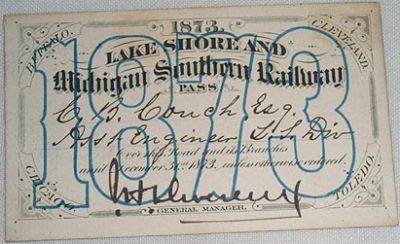 1873.
BUFFALO.
CLEVELAND.
LAKE SHORE AND
Michigan Southern Railway
PASS
C. B. Couch, Esq.
Ass't Engineer L.S. Div
Over the Road and its Branches
until December 31st 1873, unless otherwise ordered.
1873
CHICAGO.
TOLEDO.
GENERAL MANAGER.